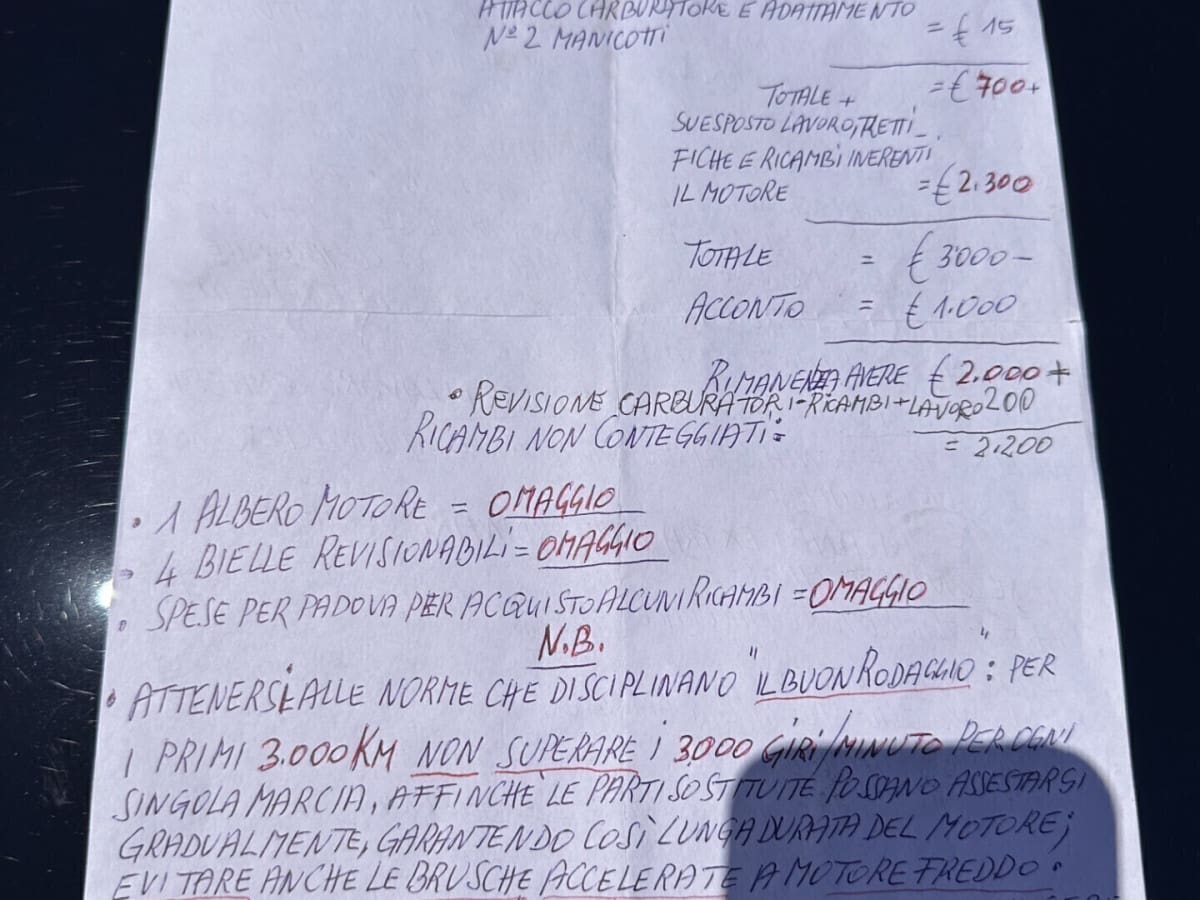 ATTACCO CARBURATORE E ADATTAMENTO
Nº 2 MANICOTTI = € 15
TOTALE + = € 700+
SUESPOSTO LAVORO, RETTI-
FICHE E RICAMBI INERENTI
IL MOTORE = € 2.300
TOTALE = € 3000 –
ACCONTO = € 1.000
RIMANENZA AVERE € 2.000 +
• REVISIONE CARBURATORI - RICAMBI + LAVORO 200
RICAMBI NON CONTEGGIATI: = 2.200
• 1 ALBERO MOTORE = OMAGGIO
• 4 BIELLE REVISIONABILI = OMAGGIO
• SPESE PER PADOVA PER ACQUISTO ALCUNI RICAMBI = OMAGGIO
N.B.
• ATTENERSI ALLE NORME CHE DISCIPLINANO "IL BUON RODAGGIO": PER
I PRIMI 3.000 KM NON SUPERARE I 3000 GIRI/MINUTO PER OGNI
SINGOLA MARCIA, AFFINCHÈ LE PARTI SOSTITUITE POSSANO ASSESTARSI
GRADUALMENTE, GARANTENDO COSÌ LUNGA DURATA DEL MOTORE;
EVITARE ANCHE LE BRUSCHE ACCELERATE A MOTORE FREDDO.